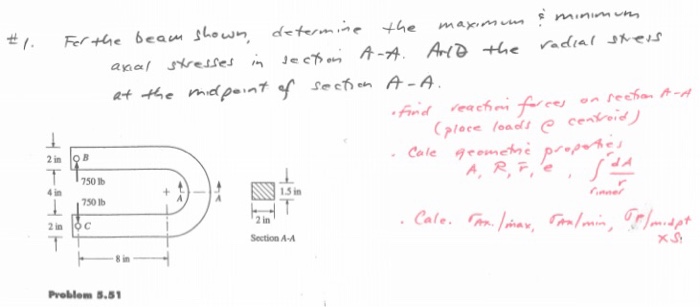 #1. For the beam shown, determine the maximum & minimum
axial stresses in section A-A. AND the radial stress
at the midpoint of section A-A.
· Find reaction forces on section A-A
(place loads @ centroid)
· Calc geometric properties
A, R, r̄, e, ∫ dA/r
r inner
· Calc. σAx./max, σAx/min, σr/midpt
2 in
B
750 lb
4 in
750 lb
2 in
C
8 in
A
A
1.5 in
2 in
Section A-A
Problem 5.51